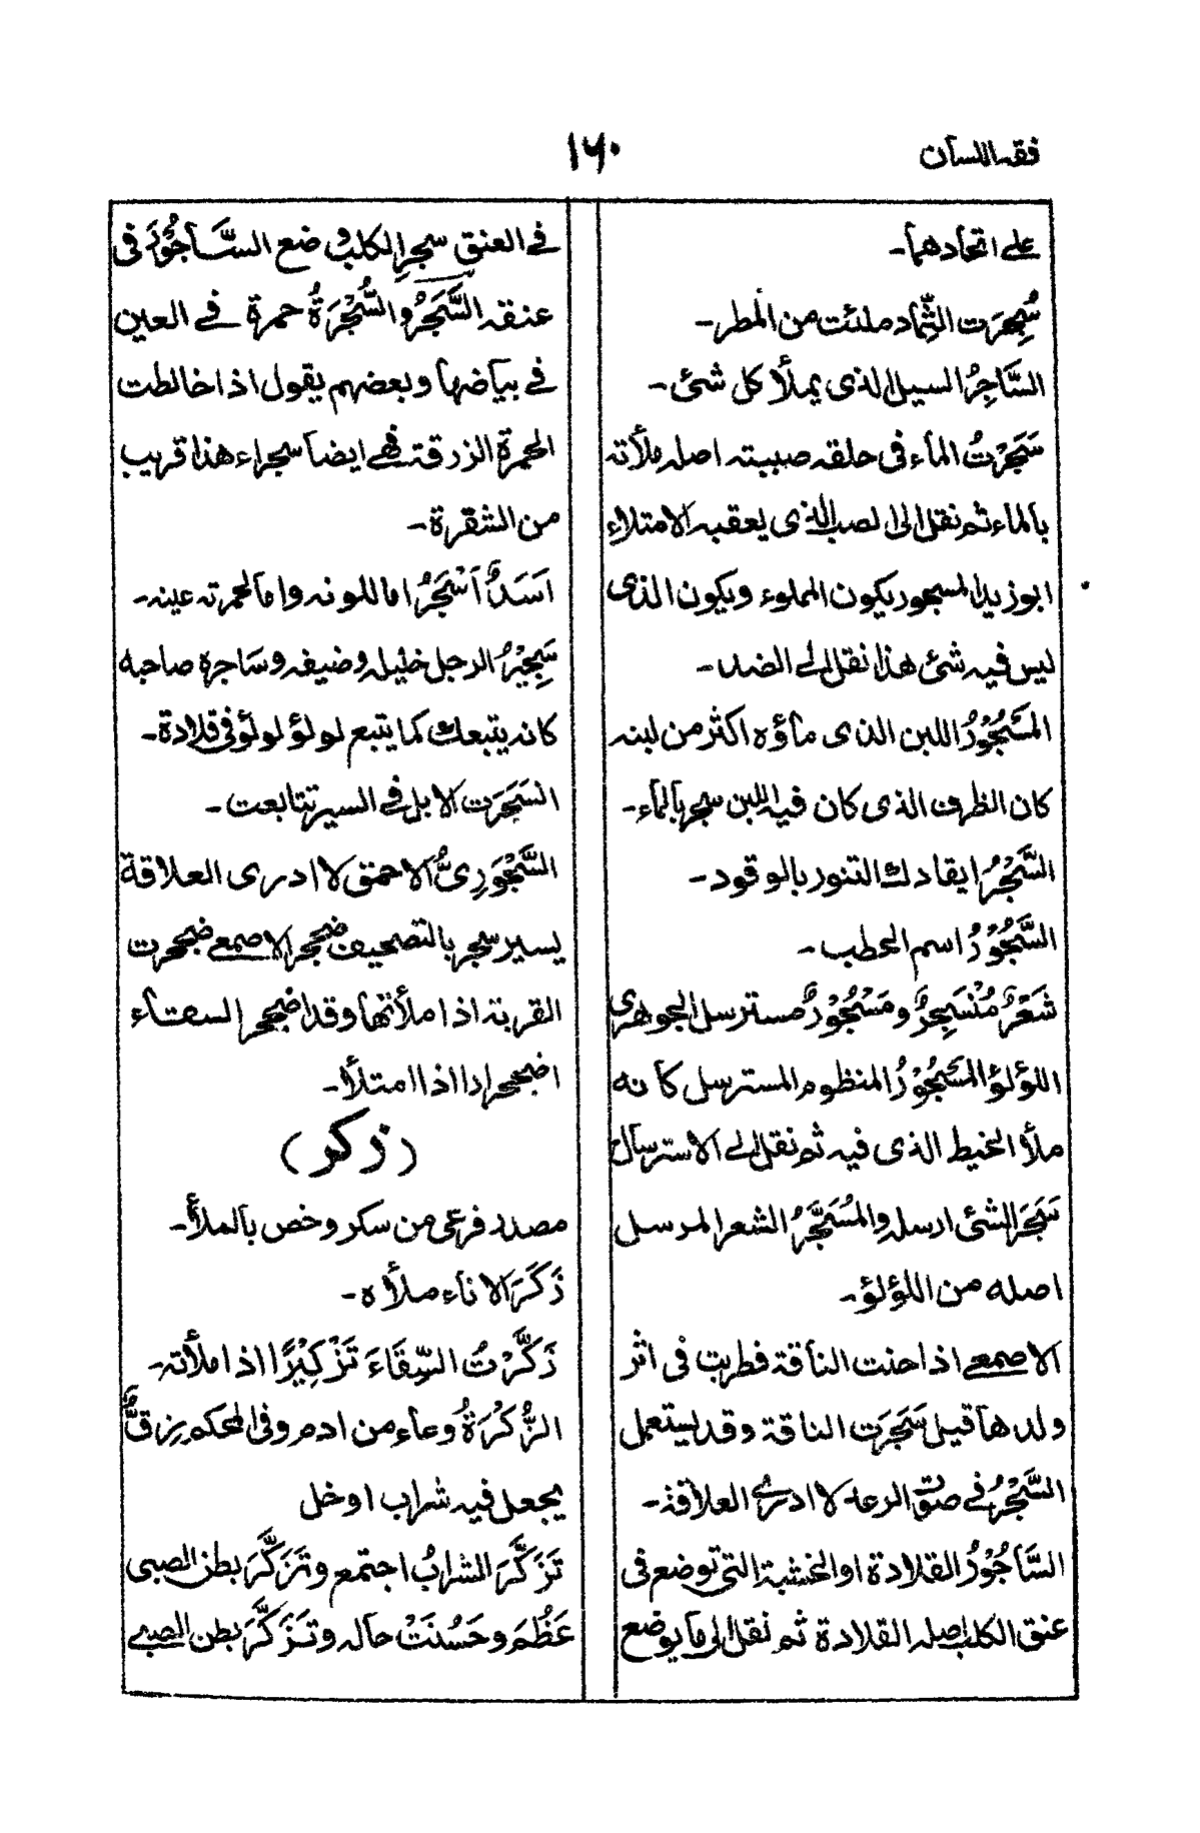 فقه اللسان
١٦٠
على اتحادهما۔
سُجِرَت الثِّماد ملئت من المطر۔
السَّاجِرُ السيل الذى يملأ كل شئ۔
سَجَرْتُ الماء فى حلقه صببته اصله ملأته
بالماء ثم نقل الى الصب الذى يعقبه الامتلاء
ابو زيد المسجور يكون المملوء ويكون الذى
ليس فيه شئ هذا نقل الى الضد۔
المَسْجُوْرُ اللبن الذى ماؤه اكثر من لبنه
كان الظرف الذى كان فيه اللبن سجر بالماء۔
السَّجْرُ ايقادك التنور بالوقود۔
السَّجُوْرُ اسم الحطب۔
شَعْرٌ مُنْسَجِرٌ ومَسْجُوْرٌ مسترسل الجوهرى
اللؤلؤ المَسْجُوْرُ المنظوم المسترسل كانه
ملأ الخيط الذى فيه ثم نقل الى الاسترسال
سَجَرَ الشئ ارسله والمُسَجَّرُ الشعر المرسل
اصله من اللؤلؤ۔
الاصمعى اذا حنت الناقة فطربت فى اثر
ولدها قيل سَجَرَت الناقة وقد يستعمل
السَّجْرُ فى صوت الرعد لا ادرى العلاقة۔
السَّاجُوْرُ القلادة او الخشبة التى توضع فى
عنق الكلب اصله القلادة ثم نقل الى ما يوضع
فى العنق سجر الكلب وضع السَّاجُوْرَ فى
عنقه السَّجَرُ والسُّجْرَةُ حمرة فى العين
فى بياضها وبعضهم يقول اذا خالطت
الحمرة الزرقة فهى ايضا سجراء هذا قريب
من الشقرة۔
اَسَدٌ اَسْجَرُ اما للونه واما لحمرته عينه۔
سَجِيْرُ الرجل خليله وضيفه وسَاجره صاحبه
كانه يتبعك كما يتبع لولؤ لولؤ فى قلادة۔
السَجَرَت الابل فى السير تتابعت۔
السَّجْوَرِىُّ الاحمق لا ادرى العلاقة
يسير سجر بالتصحيف ضجحر الاصمعى ضجحرت
القربة اذا ملأتها وقد اضجحر السقاء
اضجحرارا اذا امتلأ۔
(زكر)
مصدر فرعى من سكر وخص بالملأ۔
زَكَرَ الاناء ملأه۔
زَكَّرْتُ السِّقَاءَ تَزْكِيْرًا اذا ملأته۔
الزُّكْرَةُ وعاء من ادم وفى المحكم زِقٌّ
يجعل فيه شراب او خل
تَزَكَّرَ الشرابُ اجتمع وتَزَكَّرَ بطن الصبى
عَظُمَ وحَسُنَتْ حاله وتَزَكَّرَ بطن الصبى